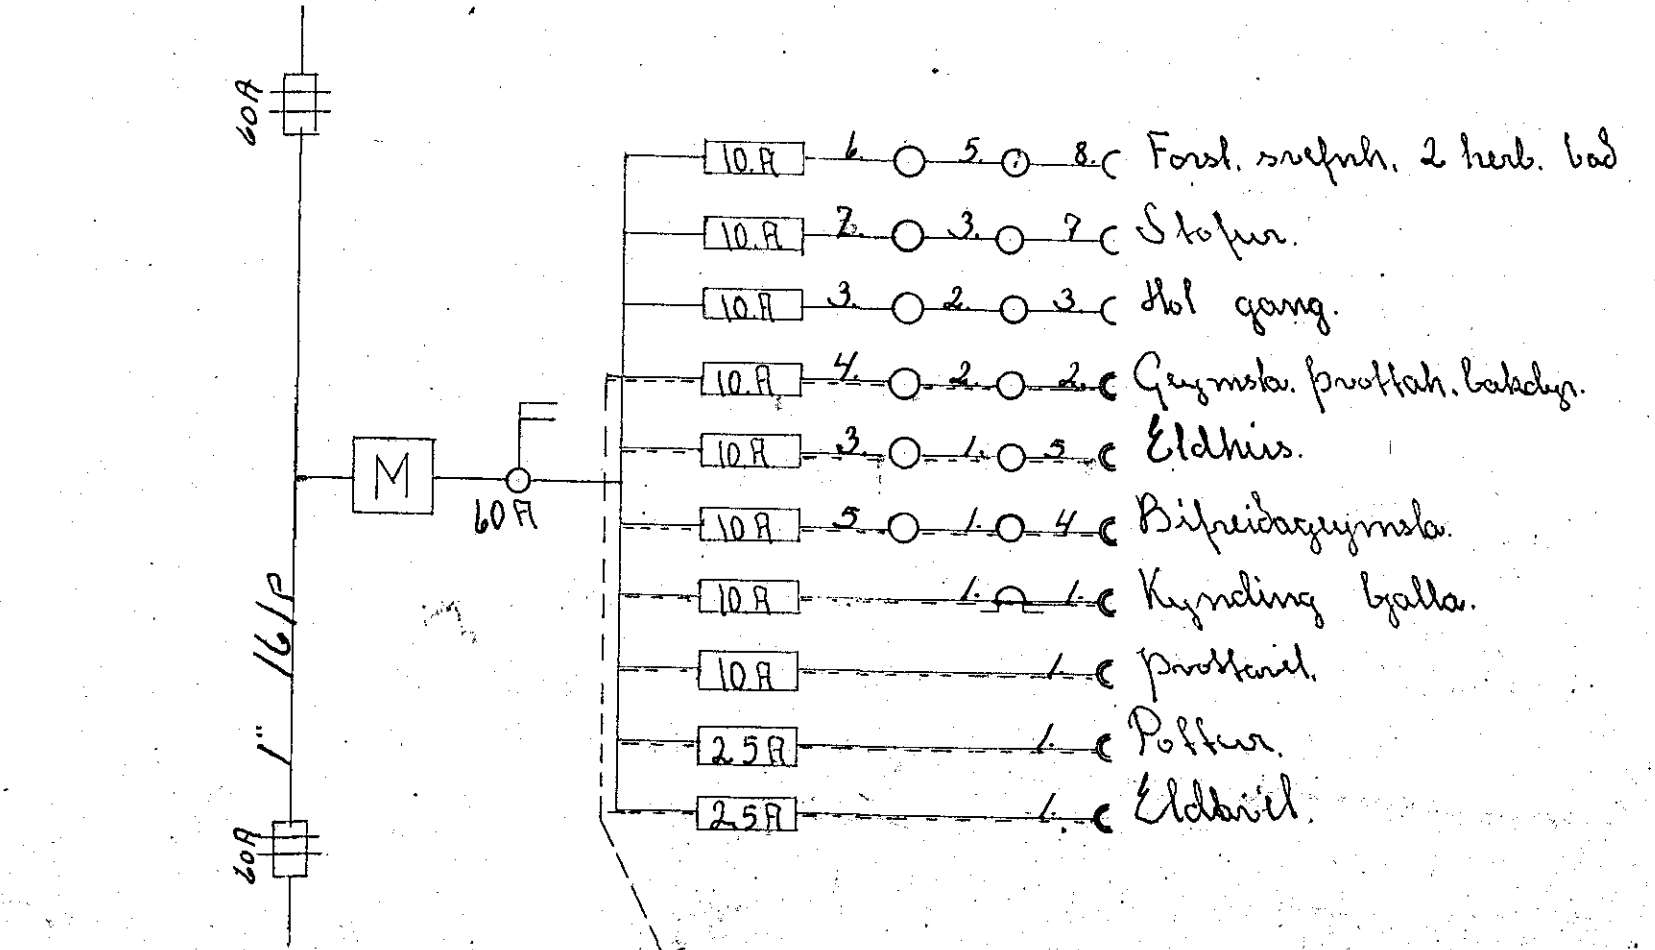 60A
10.A 6. 5. 8. Forst. svefnh. 2 herb. bað
10.A 7. 3. 7 Stofur.
10.A 3. 2. 3. Hol gang.
10.A 4. 2. 2. Geymsla. þvottah. bakdyr.
10 A 3. 1. 5 Eldhús.
M
60 A
10 A 5 1. 4 Bifreiðageymsla.
10 A 1. 1. Kynding bjalla.
1" 16/P
10 A 1. þvottavél.
25A 1. Pottur.
25A 1. Eldavél.
60A